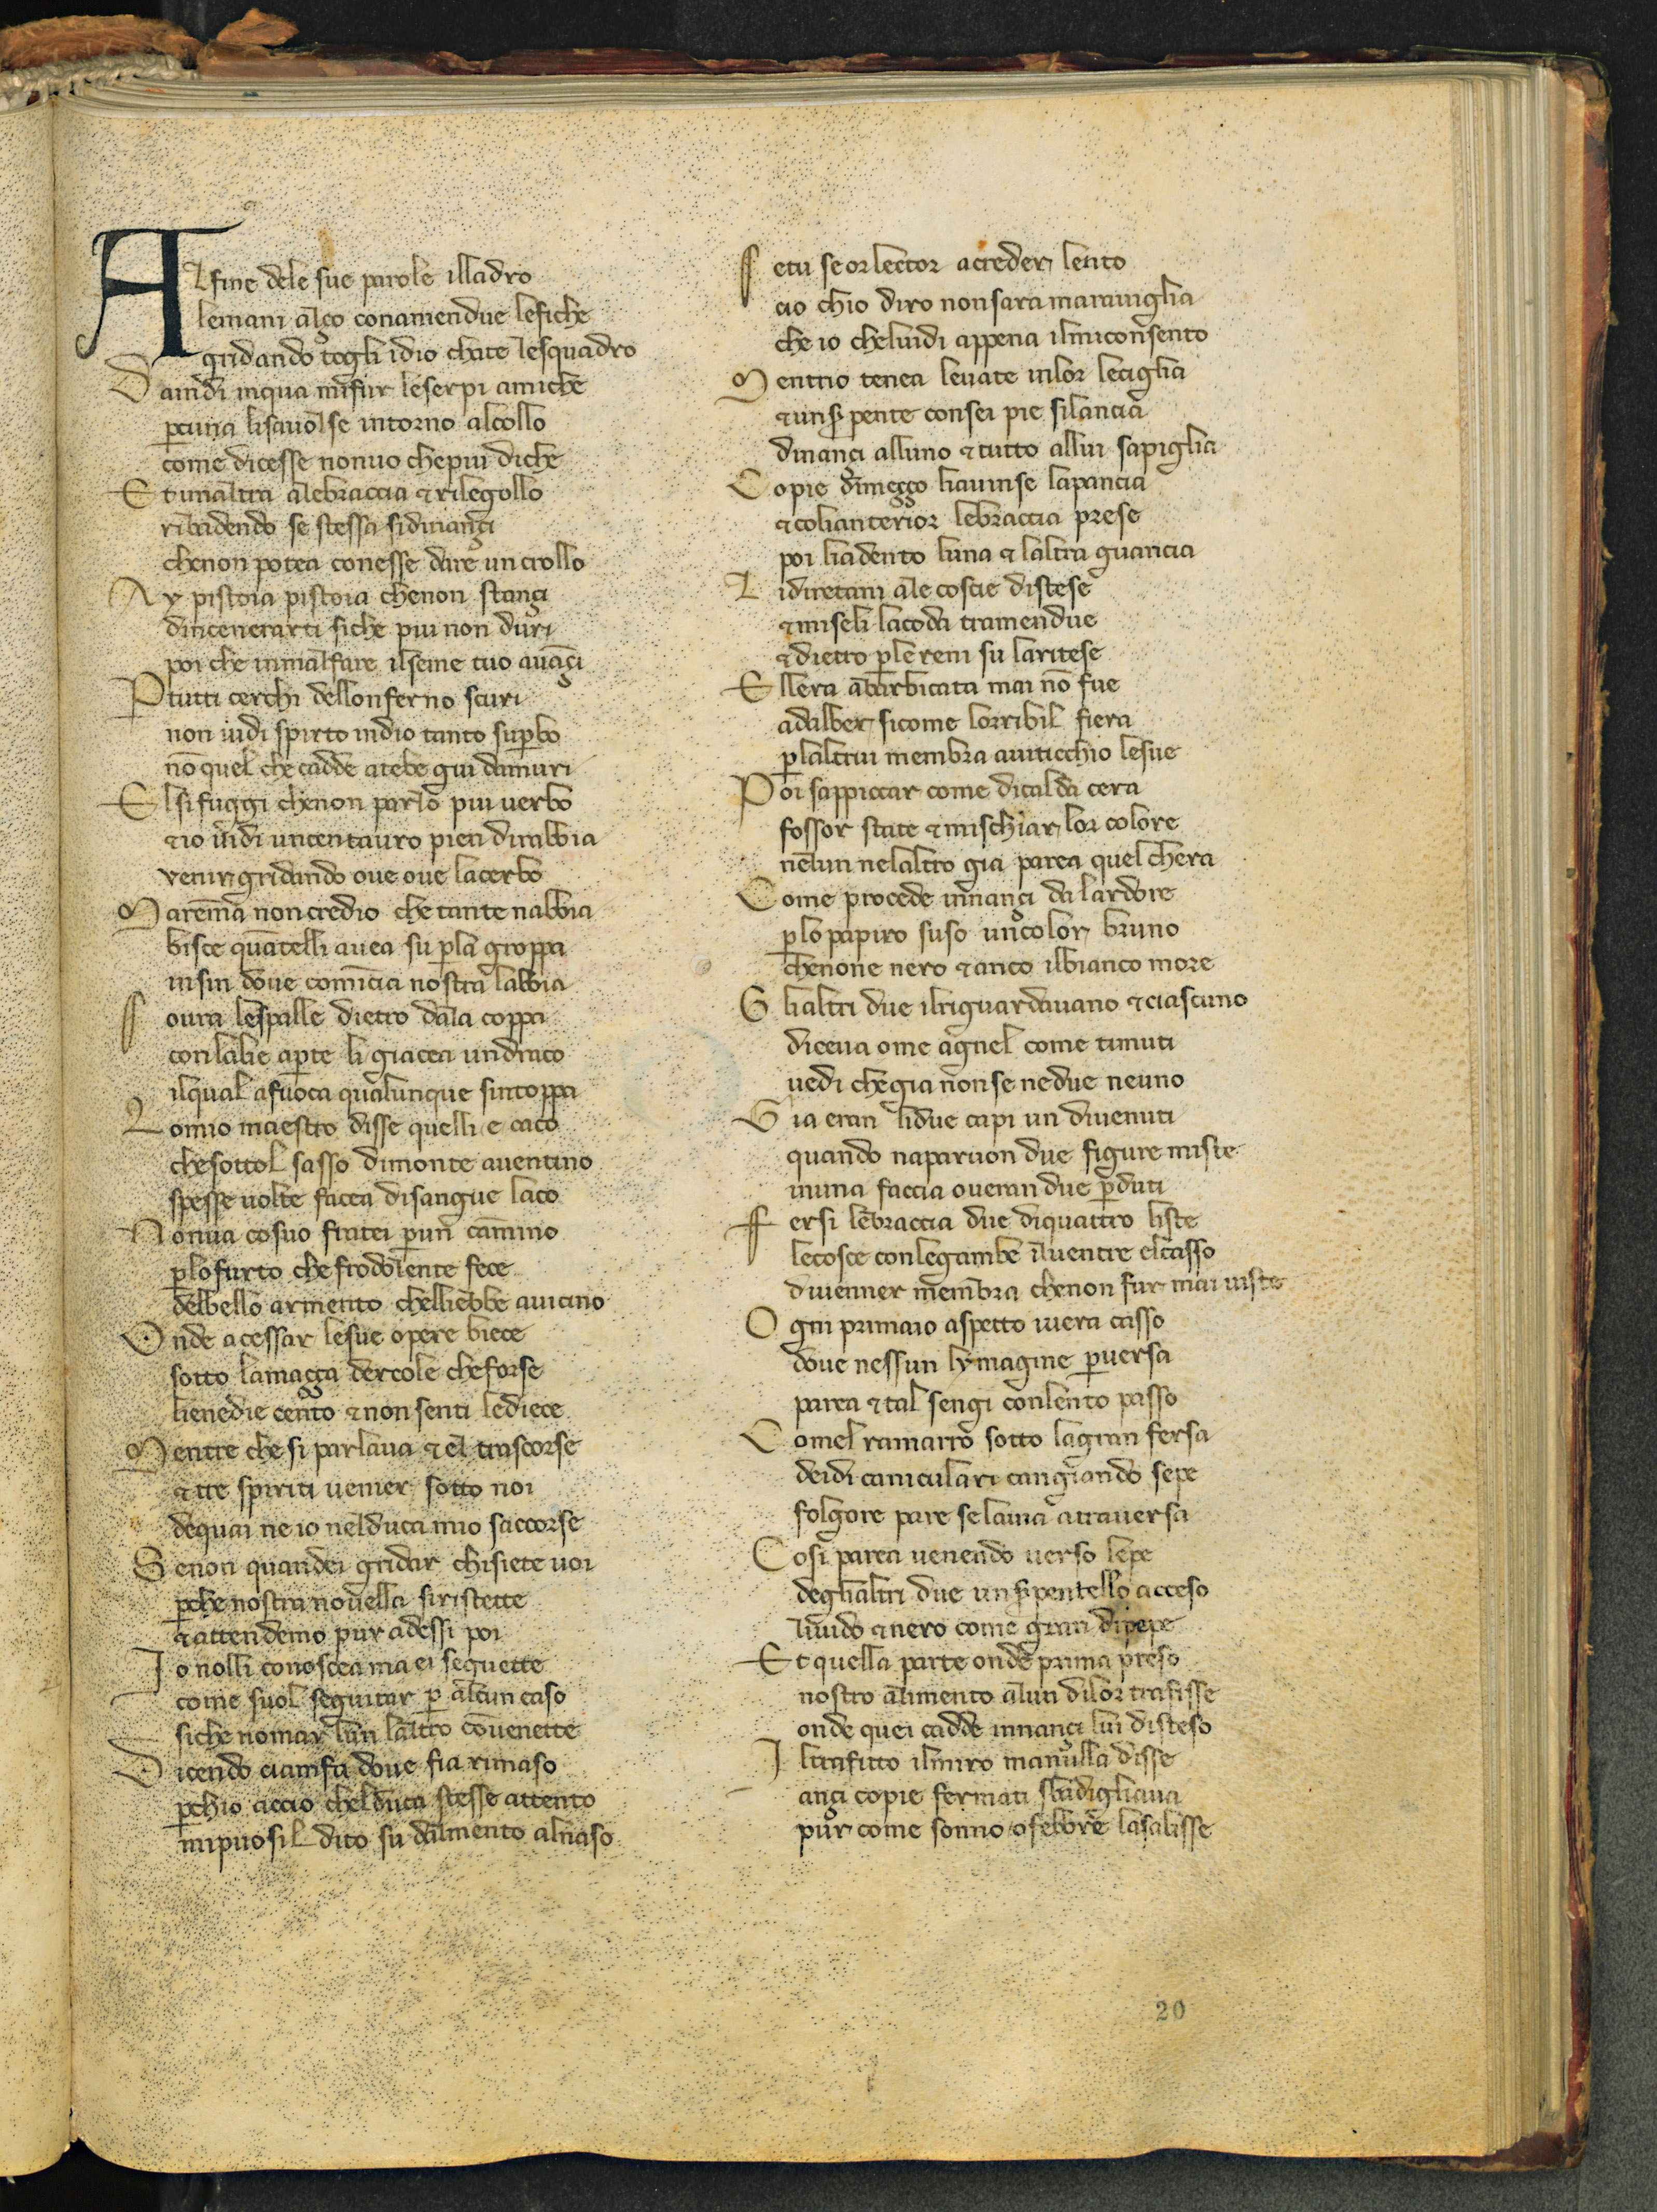 Alfine dele sue parole illadro
lemani alço conamendue lefiche
gridando togli idio chate lesquadro
Daindi inqua mifur leserpi amiche
p̲cuna lisauolse intorno alcollo
come dicesse nonuo chepiu diche
Et unaltra alebraccia ⁊ rilegollo
ribadendo se stessa sidinançi
chenon potea conesse dare un crollo
Ay pistoia pistoia chenon stançi
dincenerarti siche piu non duri
poi che inmalfare ilseme tuo auāçi
P̲ tutti cerchi dellonferno scuri
non uidi spirto indio tanto sup̲bo
nō quel che cadde atebe giu damuri
Elsi fuggi chenon parlo piu uerbo
⁊ io uidi uncentauro pien dirabbia
venir gridando oue oue lacerbo
Marēma non credio che tante nabbia
bisce quātelli auea su p̲ la groppa
insin doue comīcia nostra labbia
Soura lespalle dietro dala coppa
conlalie ap̲te li giacea undraco
ilqual afuoca qualunque sintoppa
Lomio maestro disse quelli e caco
chesottol sasso dimonte auentino
spesse uolte facea disangue laco
Nonua cosuo fratei p̲ un cammino
p̲ lo furto che frodolente fece
delbello armento chelliebbe auicino
Onde acessar lesue opere biece
sotto lamaçça dercole cheforse
lienedie cento ⁊ non senti lediece
Mentre che si parlaua ⁊ el trascorse
⁊ tre spiriti uenier sotto noi
dequai ne io nelduca mio saccorse
Senon quandei gridar chisiete uoi
p̲che nostra nouella siristette
⁊ attendemo pur adessi poi
Io nolli conoscea ma ei seguette
come suol seguitar p̲ alcun caso
siche nomar lun laltro cōuenette
Dicendo cianfa doue fia rimaso
p̲chio accio chelduca stesse attento
mipuosil dito su dalmento alnaso
Setu seor lector acreder lento
cio chio diro nonsara marauiglia
che io cheluidi appena ilmiconsento
Mentrio tenea leuate inlor leciglia
⁊ uns̲pente consei pie silancia
dinançi alluno ⁊ tutto allui sapiglia
Copie dimeçço liauinse lapancia
⁊ colianterior lebraccia prese
poi liadento luna ⁊ laltra guancia
Lidiretani ale coscie distese
⁊ miseli lacoda tramendue
⁊ dietro p̲ le reni su laritese
Ellera abarbicata mai nō fue
adalber sicome lorribil fiera
p̲ laltrui membra auiticchio lesue
Poi sappiccar come dicalda cera
fossor state ⁊ mischiar lor colore
nelun nelaltro gia parea quel chera
Come procede innançi da lardore
p̲ lo papiro suso uncolor bruno
chenone nero ⁊ anco ilbianco more
Glialtri due ilriguardauano ⁊ ciascuno
diceua ome agnel come timuti
uedi chegia nonse nedue neuno
Gia eran lidue capi un diuenuti
quando naparuon due figure miste
inuna faccia oueran due p̲duti
Fersi lebraccia due diquattro liste
lecosce conlegambe iluentre elcasso
diuenner membra chenon fur mai uiste
Ogni primaio aspetto iuera casso
doue nessun lymagine p̲uersa
parea ⁊ tal sengi conlento passo
Comel ramarro sotto lagran fersa
deidi caniculari cangiando sepe
folgore pare selauia atrauersa
Cosi parea uenendo uerso lepe
deglialtri due un s̲pentello acceso
liuido ⁊ nero come gran dipepe
Et quella parte onde prima preso
nostro alimento alun dilor trafisse
onde quei cadde innançi lui disteso
Iltrafitto ilmiro manulla disse
ançi copie fermati sbadigliaua
pur come sonno o febbre lasalisse
20